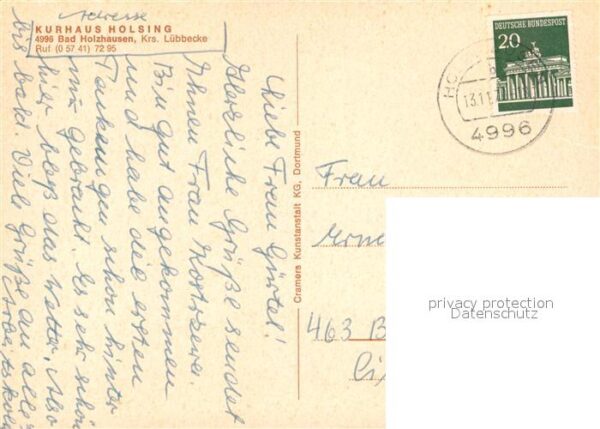 Adresse
KURHAUS HOLSING
4996 Bad Holzhausen, Krs. Lübbecke
Ruf (0 57 41) 72 95
Liebe Frau Gürtel!
Herzliche Grüße sendet
Ihnen Frau
Bin gut angekommen
und habe die ersten
schon hinter
mir gebracht. Es sehr schön
hier bloß das Wetter, Also
bis bald. Viel Grüße an alle
Cramers Kunstanstalt KG, Dortmund
DEUTSCHE BUNDESPOST
20
HO
13.11.
4996
Frau
463 B
privacy protection
Datenschutz